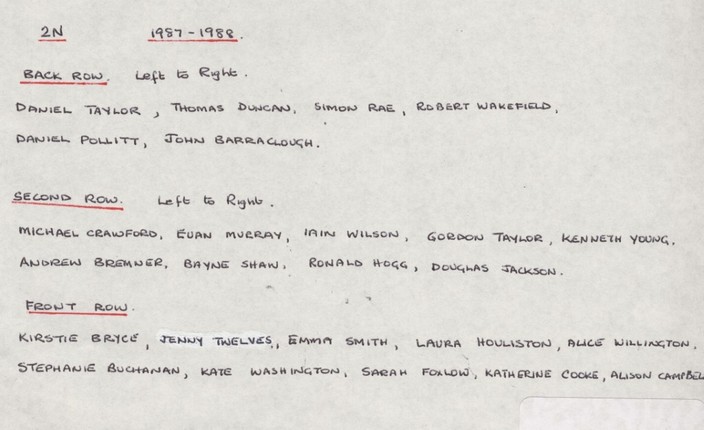 2N 1987-1988.
BACK ROW. Left to Right.
DANIEL TAYLOR, THOMAS DUNCAN, SIMON RAE, ROBERT WAKEFIELD,
DANIEL POLLITT, JOHN BARRACLOUGH.
SECOND ROW. Left to Right.
MICHAEL CRAWFORD, EUAN MURRAY, IAIN WILSON, GORDON TAYLOR, KENNETH YOUNG,
ANDREW BREMNER, BAYNE SHAW, RONALD HOGG, DOUGLAS JACKSON.
FRONT ROW.
KIRSTIE BRYCE, JENNY TWELVES, EMMA SMITH, LAURA HOULISTON, ALICE WILLINGTON,
STEPHANIE BUCHANAN, KATE WASHINGTON, SARAH FOXLOW, KATHERINE COOKE, ALISON CAMPBEL